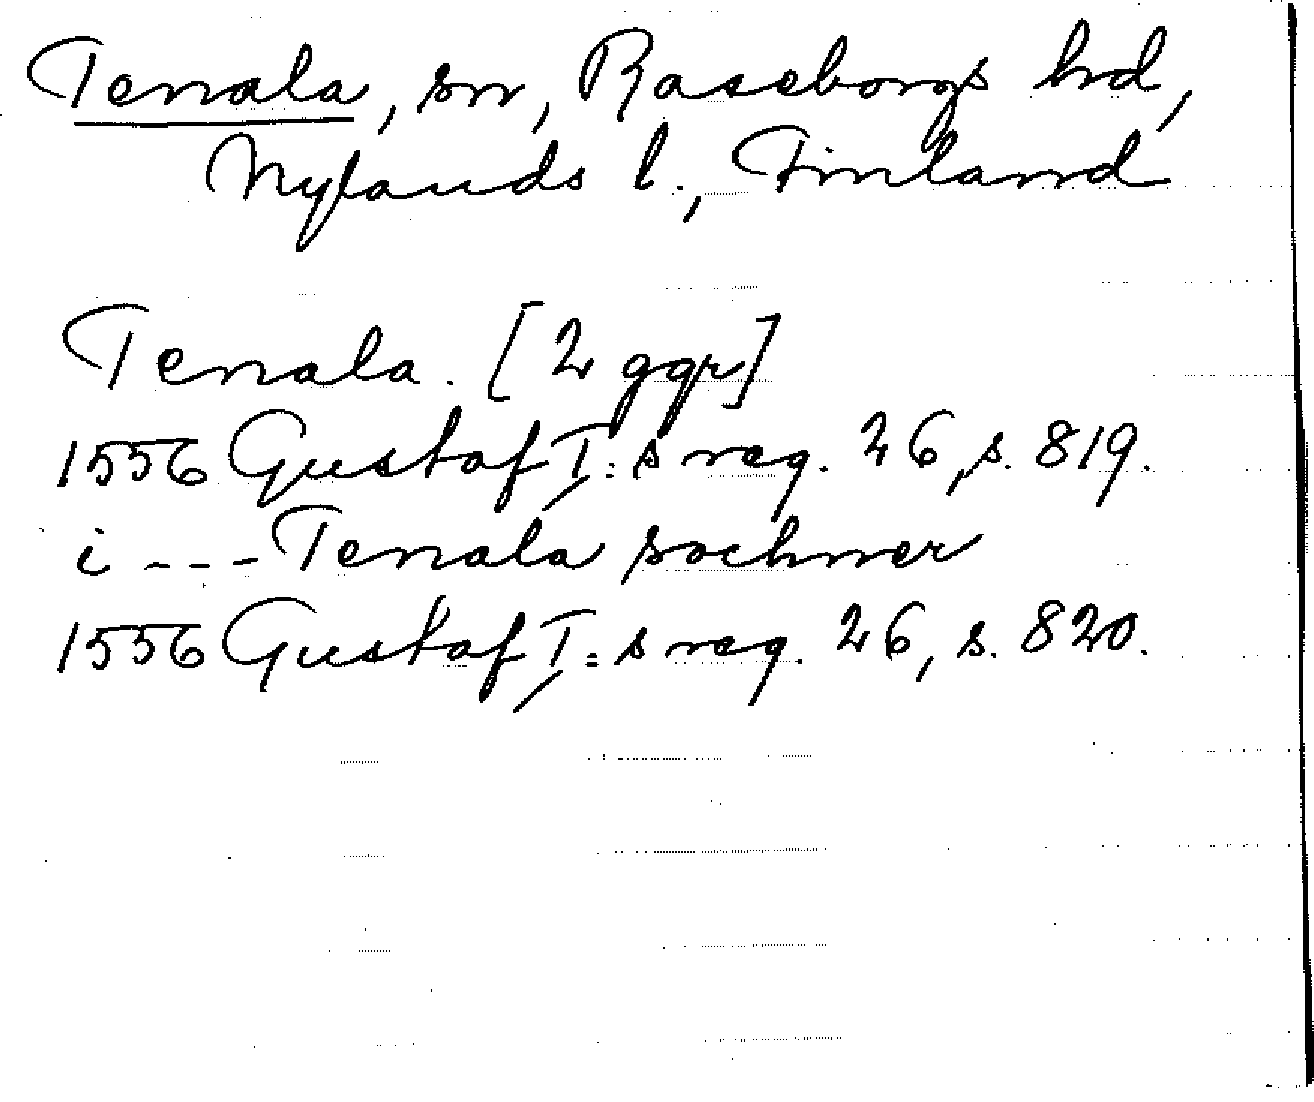 Tenala, sn, Raseborgs hd,
Nylands l., Finland
Tenala. [2 ggr]
1556 Gustaf I:s reg. 26, s. 819.
i --- Tenala sochner
1556 Gustaf I:s reg. 26, s. 820.